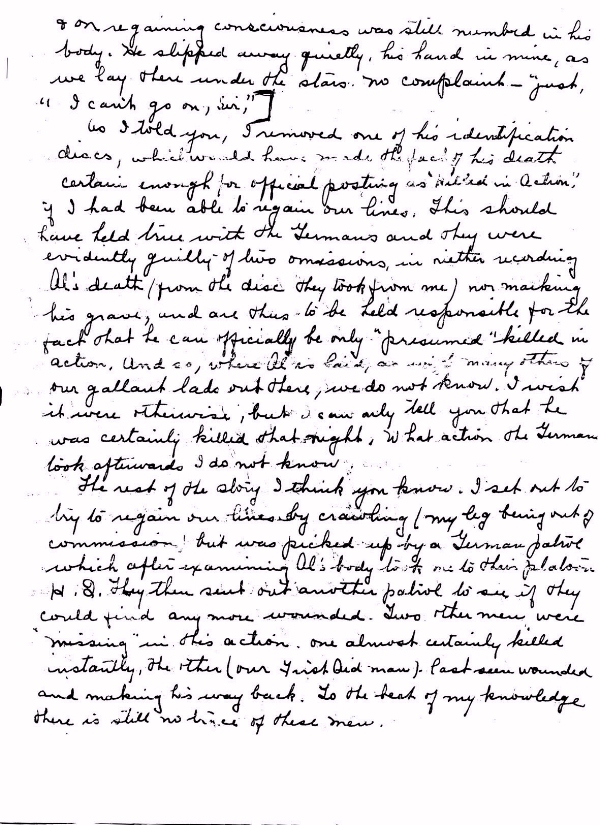 & on regaining consciousness was still numbed in his
body. He slipped away quietly, his hand in mine, as
we lay there under the stars. no complaint – "just,
" I can't go on, Sir,"]
As I told you, I removed one of his identification
discs, which would have made the fact of his death
certain enough for official posting as "Killed in Action",
if I had been able to regain our lines. This should
have held true with the Germans and they were
evidently guilty of two omissions, in neither recording
Al's death (from the disc they took from me) nor marking
his grave, and are thus to be held responsible for the
fact that he can officially be only "presumed" killed in
action. And so, where Al is laid, as with many others of
our gallant lads out there, we do not know. I wish
it were otherwise, but I can only tell you that he
was certainly killed that night, What action the German
took afterwards I do not know.
The rest of the story I think you know. I set out to
try to regain our lines by crawling (my leg being out of
commission) but was picked up by a German patrol
which after examining Al's body took me to their platoon
H.Q. They then sent out another patrol to see if they
could find any more wounded. Two other men were
"missing" in this action. one almost certainly killed
instantly, the other (our First Aid man) last seen wounded
and making his way back. To the best of my knowledge
there is still no trace of these men.